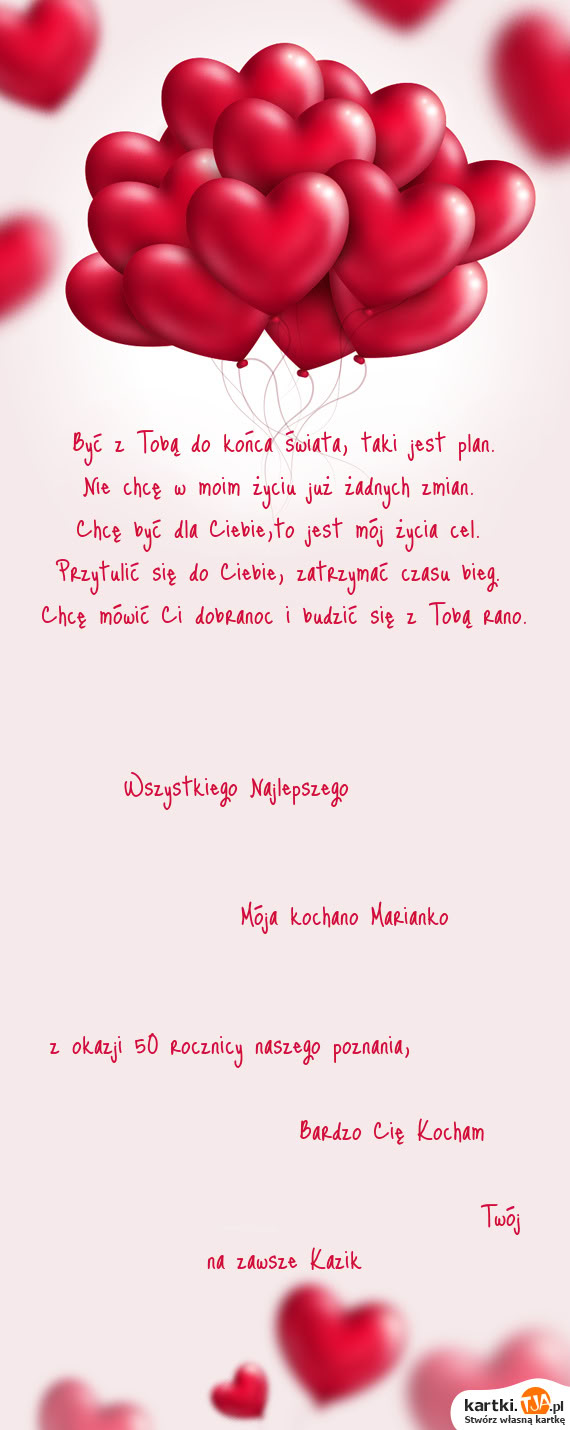 Być z Tobą do końca świata, taki jest plan.
Nie chcę w moim życiu już żadnych zmian.
Chcę być dla Ciebie,to jest mój życia cel.
Przytulić się do Ciebie, zatrzymać czasu bieg.
Chcę mówić Ci dobranoc i budzić się z Tobą rano.
Wszystkiego Najlepszego
Mója kochano Marianko
z okazji 50 rocznicy naszego poznania,
Bardzo Cię Kocham
Twój
na zawsze Kazik
kartki.TJA.pl
Stwórz własną kartkę